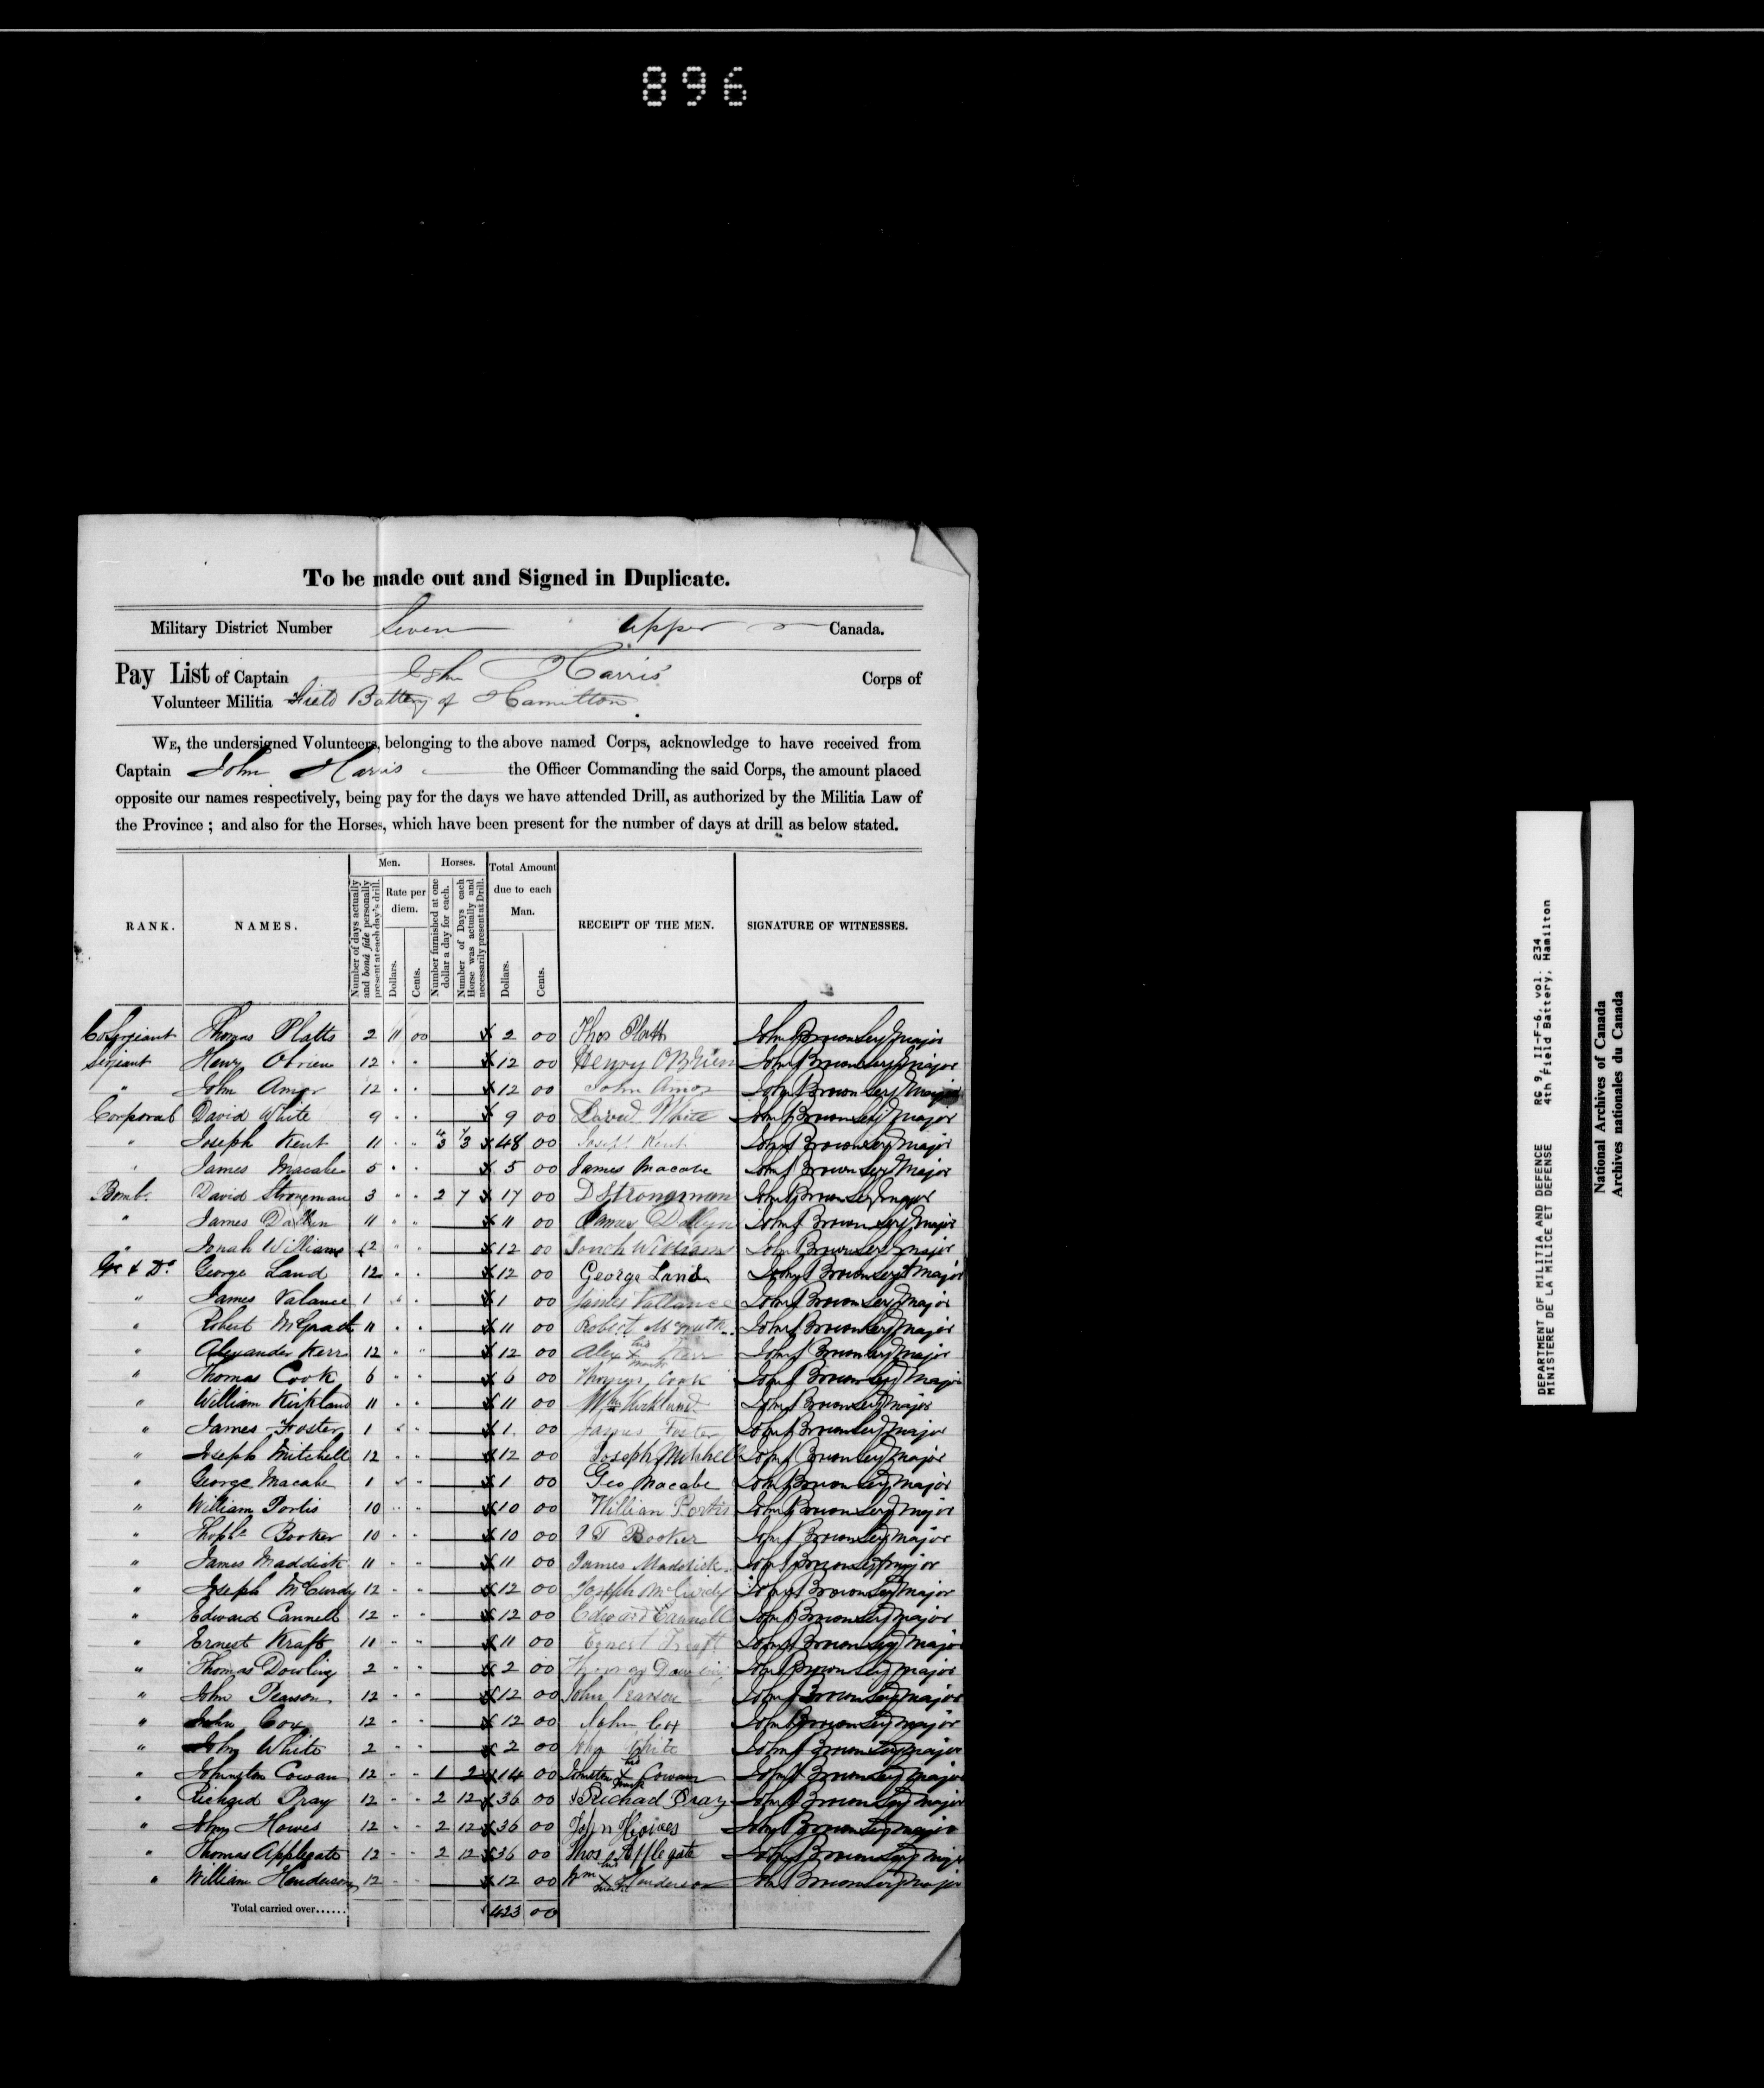 896
To be made out and Signed in Duplicate.
Military District Number Seven Upper Canada.
Pay List of Captain John Harris' Corps of
Volunteer Militia Field Battery of Hamilton.
WE, the undersigned Volunteers, belonging to the above named Corps, acknowledge to have received from
Captain John Harris the Officer Commanding the said Corps, the amount placed
opposite our names respectively, being pay for the days we have attended Drill, as authorized by the Militia Law of
the Province ; and also for the Horses, which have been present for the number of days at drill as below stated.
RANK. NAMES. Men. Horses. Total Amount due to each Man. RECEIPT OF THE MEN. SIGNATURE OF WITNESSES.
Number of days actually and bonâ fide personally present at each day's drill. Rate per diem. Dollars. Cents. Number furnished at one dollar a day for each. Number of Days each Horse was actually and necessarily present at Drill. Dollars. Cents.
Thomas Platts 2 11 00 2 00 Thos Platts John Brown Serj Major
Serjeant Henry Obrien 12 " " 12 00 Henry OBrien John Brown Serj Major
" John Amor 12 " " 12 00 John Amor John Brown Serj Major
Corporal David White 9 " " 9 00 David White John Brown Serj Major
" Joseph Kent 11 " " 48 00 Joseph Kent John Brown Serj Major
" James Macabe 5 " " 5 00 James Macabe John Brown Serj Major
Bomb. David Strongman 3 " " 2 7 17 00 D Strongman John Brown Serj Major
" James 11 " " 11 00 James Dallyn John Brown Serj Major
" Jonah Williams 12 " " 12 00 Jonah Williams John Brown Serj Major
Gr & Dr George Land 12 " " 12 00 George Land John Brown Serj Major
" James Valance 1 " " 1 00 James Vallance John Brown Serj Major
" Robert McGrath 11 " " 11 00 Robert John Brown Serj Major
" Alexander Kerr 12 " " 12 00 Alex his X mark Kerr John Brown Serj Major
" Thomas Cook 6 " " 6 00 Thomas Cook John Brown Serj Major
" William Kirkland 11 " " 11 00 Wm Kirkland John Brown Serj Major
" James Foster 1 " " 1 00 James Foster John Brown Serj Major
" Joseph Mitchell 12 " " 12 00 Joseph Mitchell John Brown Serj Major
" George Macabe 1 " " 1 00 Geo Macabe John Brown Serj Major
" William Portis 10 " " 10 00 William Portis John Brown Serj Major
" Booker 10 " " 10 00 Booker John Brown Serj Major
" James Maddick 11 " " 11 00 James Maddick John Brown Serj Major
" Joseph McCurdy 12 " " 12 00 Joseph McCurdy John Brown Serj Major
" Edward Cannell 12 " " 12 00 Edward Cannell John Brown Serj Major
" Ernest Kraft 11 " " 11 00 Ernest Kraft John Brown Serj Major
" Thomas Dowling 2 " " 2 00 Thomas Dowling John Brown Serj Major
" John Pearson 12 " " 12 00 John Pearson John Brown Serj Major
" John Cox 12 " " 12 00 John Cox John Brown Serj Major
" John White 2 " " 2 00 John White John Brown Serj Major
" Johnston Cowan 12 " " 1 2 14 00 Johnston his X mark Cowan John Brown Serj Major
" Richard Pray 12 " " 2 12 36 00 Richard Pray John Brown Serj Major
" John Howes 12 " " 2 12 36 00 John Howes John Brown Serj Major
" Thomas Applegate 12 " " 2 12 36 00 Thos Applegate John Brown Serj Major
" William Henderson 12 " " 12 00 Wm his X mark Henderson John Brown Serj Major
Total carried over...... 423 00
DEPARTMENT OF MILITIA AND DEFENCE RG 9, II-F-6, vol. 234
MINISTERE DE LA MILICE ET DEFENSE 4th Field Battery, Hamilton
National Archives of Canada
Archives nationales du Canada